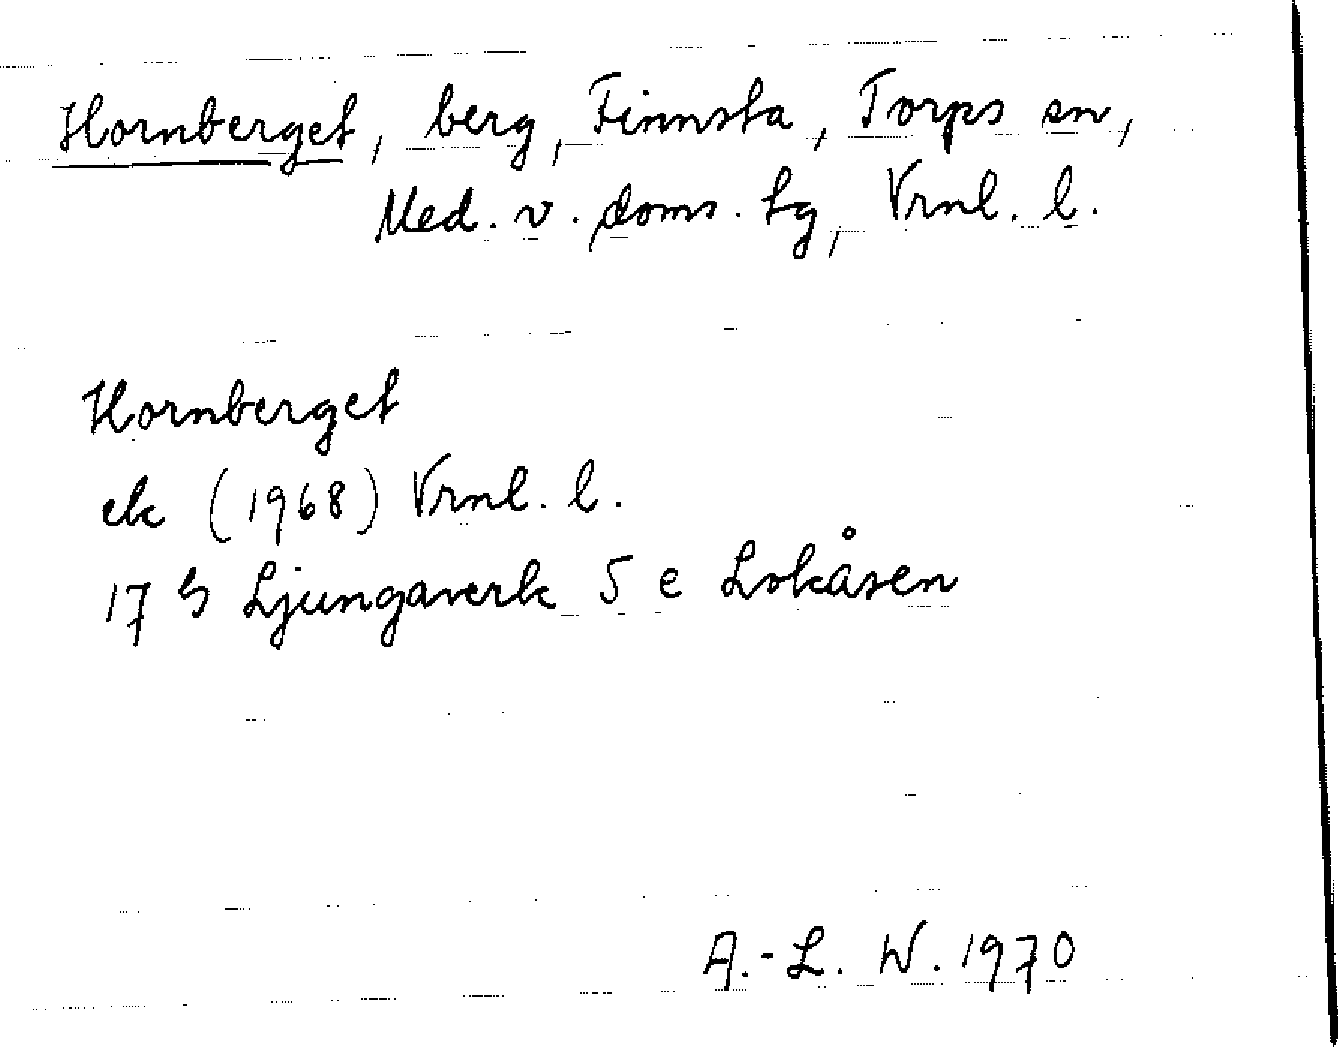 Hornberget, berg, Finnsta, Torps sn,
Med. v. doms. hg, Vrnl. l.
Hornberget
ek (1968) Vrnl. l.
17 h Ljungaverk 5 e Lokåsen
A.-L. W. 1970